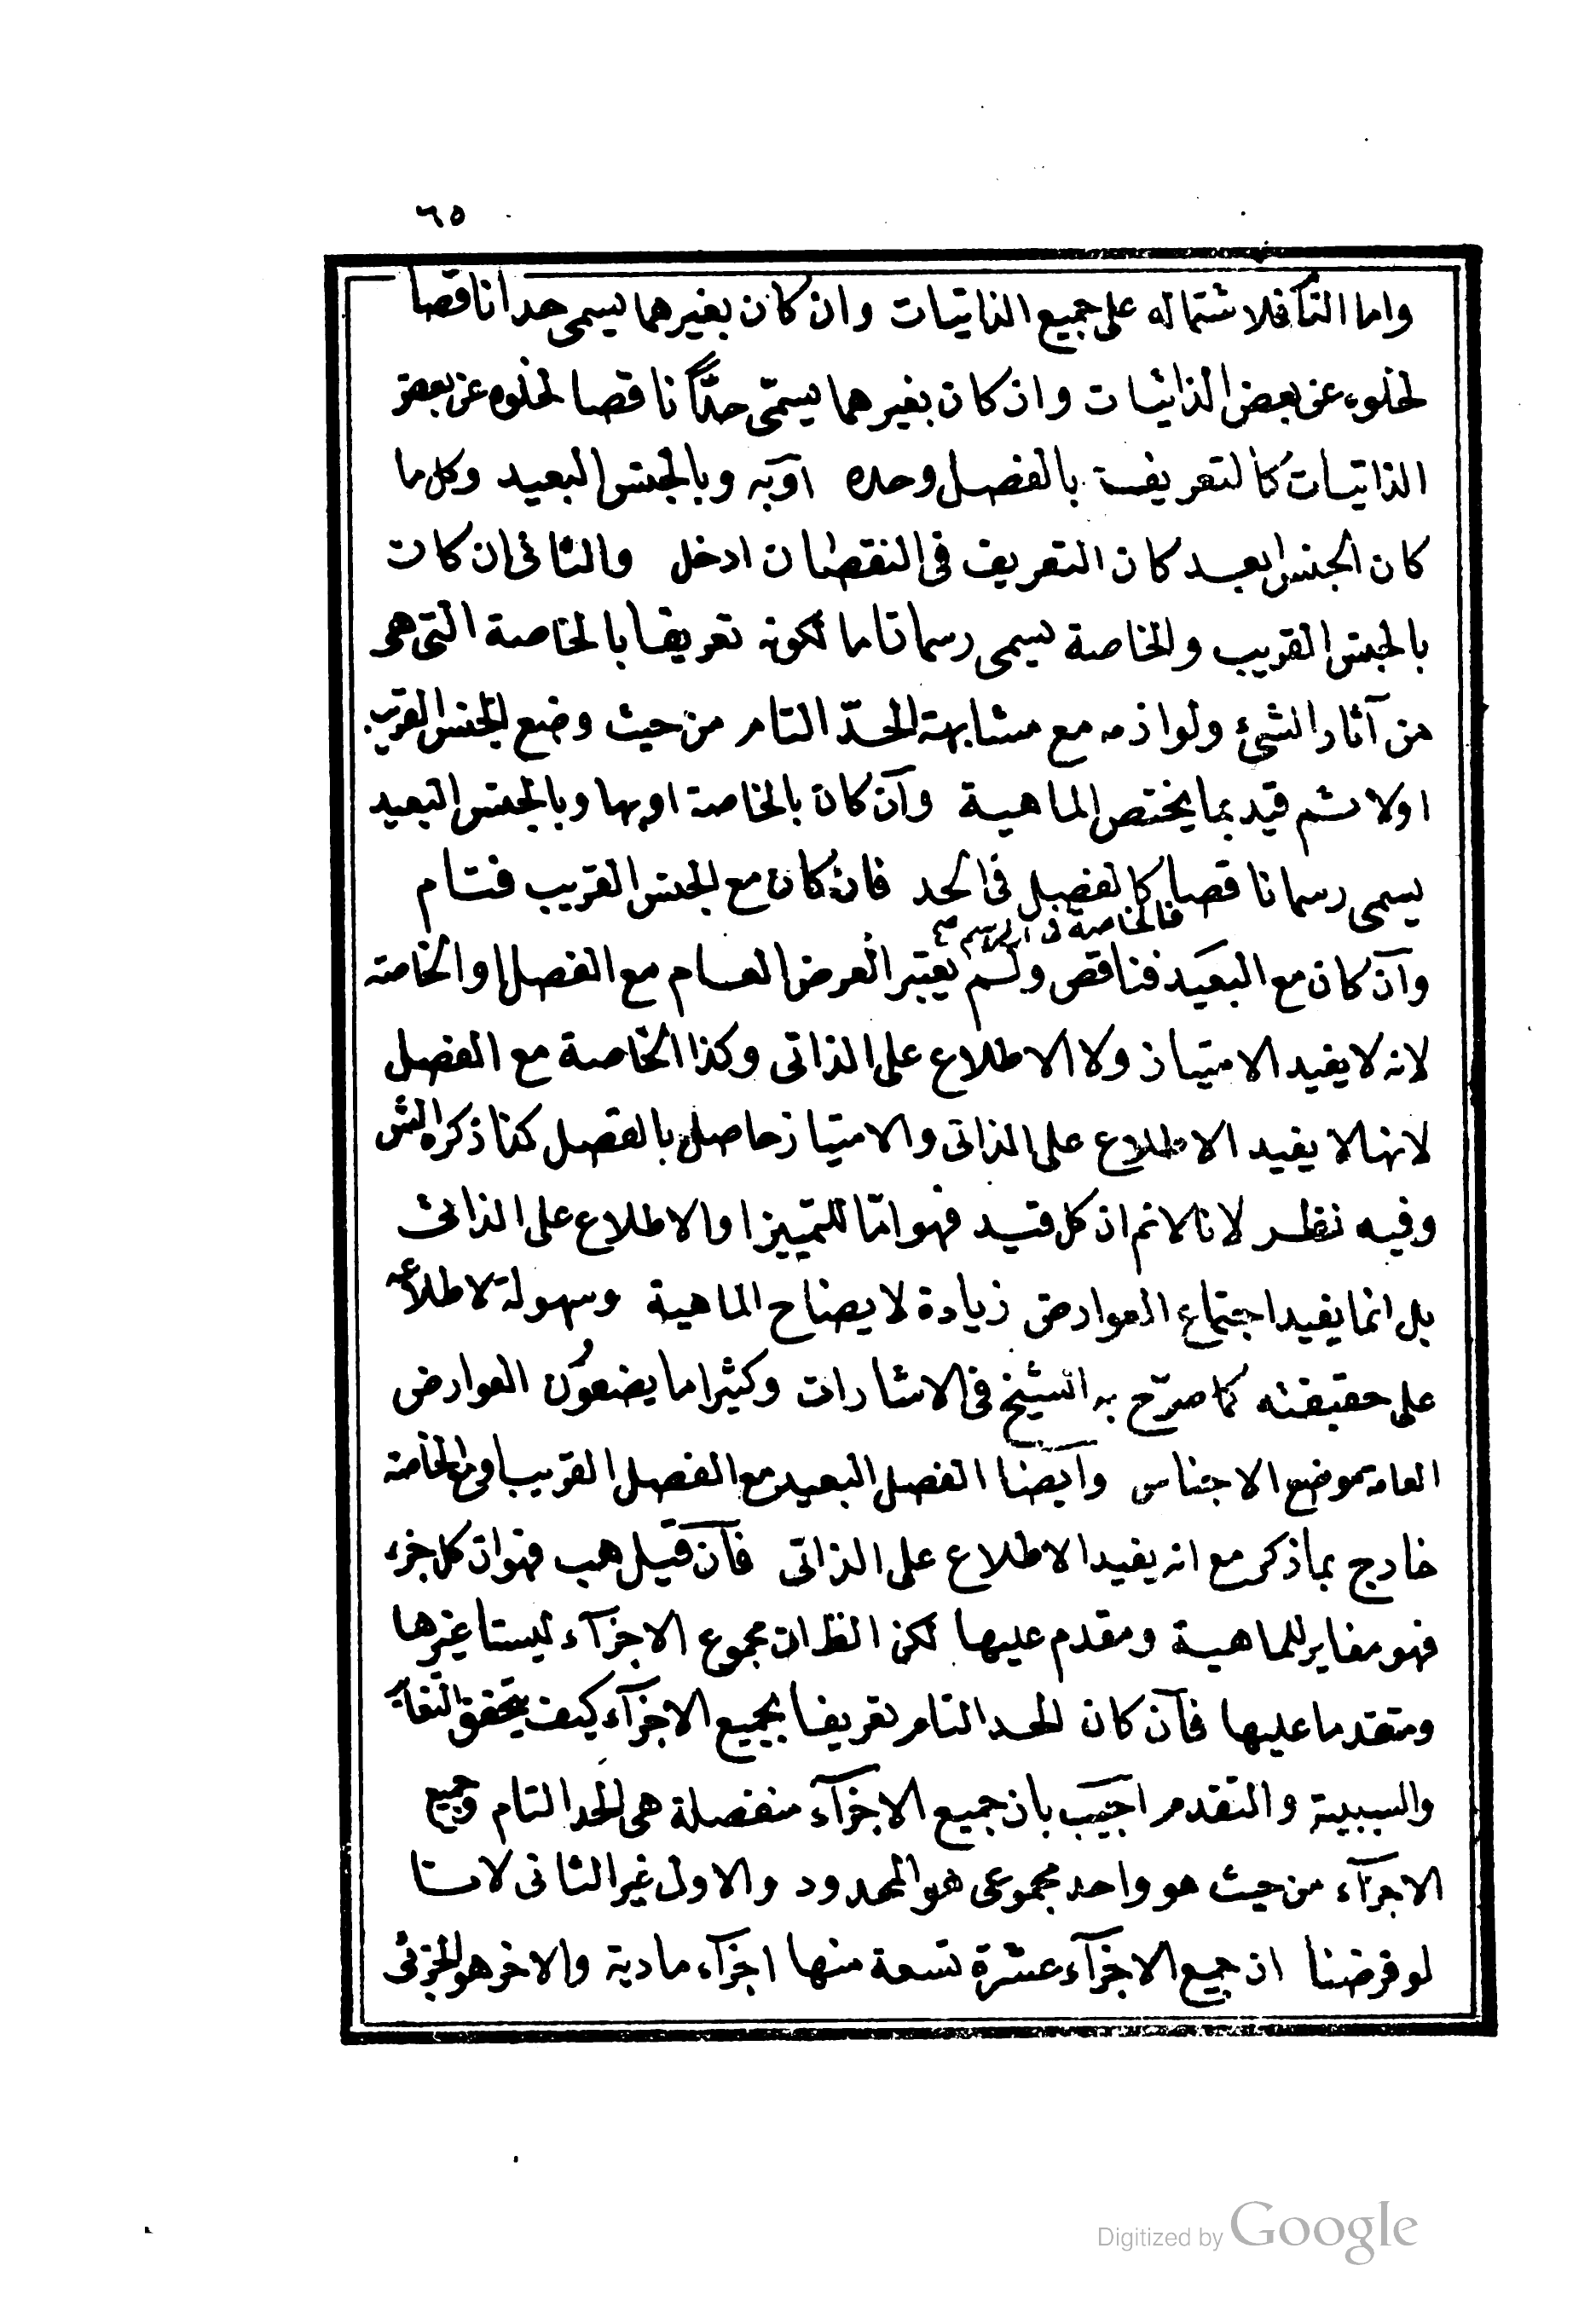 ٦٥
واما التا فلاشتماله على جميع الذاتيات وان كان بغيرهما يسمى حدا ناقصا
لخلوه عن بعض الذاتيات وان كان بغيرهما يسمّى حدًّا ناقصا لخلوه عن بعض
الذاتيات كالتعريف بالفصل وحده اوبه وبالجنس البعيد وكل ما
كان الجنس ابعد كان التعريف فى النقصان ادخل والثانى ان كان
بالجنس القريب والخاصة يسمى رسما تاما لكونه تعريفا بالخاصة التى هى
من آثار الشئ ولوازمه مع مشابهته الحدّ التام من حيث وضع الجنس القريب
اولا ثم قيد بما يختص الماهية وآن كان بالخاصة اوبها وبالجنس البعيد
يسمى رسما ناقصا كالفصل فى الحد فان كان مع الجنس القريب فتام
فالخاصة فى الرسم
وآن كان مع البعيد فناقص ولم يعتبر العرض العام مع الفصل او الخاصة
لانه لا يفيد الامتياز ولا الاطلاع على الذاتى وكذا الخاصة مع الفصل
لانها لا يفيد الاطلاع على الذاتى والامتياز حاصل بالفصل كذا ذكره الش
وفيه نظر لانا لانم ان كل قيد فهو امّا للتمييز او الاطلاع على الذاتى
بل انما يفيد اجتماع العوارض زيادة لايضاح الماهية وسهولة لاطلاعه
على حقيقته كما صرّح به الشيخ فى الاشارات وكثيرا ما يضعون العوارض
العامة موضع الاجناس وآيضا الفصل البعيد مع الفصل القريب او مع الخاصة
خارج بما ذكر مع انه يفيد الاطلاع على الذاتى فآن قيل هب فهو ان كل جزء
فهو مغاير للماهية ومقدم عليها لكن الظ ان مجموع الاجزآء ليستا غيرها
ومتقدما عليها فآن كان الحد التام تعريفا بجميع الاجزآء كيف يتحقق التغاير
والسببية والتقدم اجيب بان جميع الاجزآء منفصلة هى الحد التام وجميع
الاجزآء من حيث هو واحد مجموعى هو المحدود والاول غير الثانى لانا
لو فرضنا ان جميع الاجزآء عشرة تسعة منها اجزآء مادية والاخر هو الجزئى
Digitized by Google